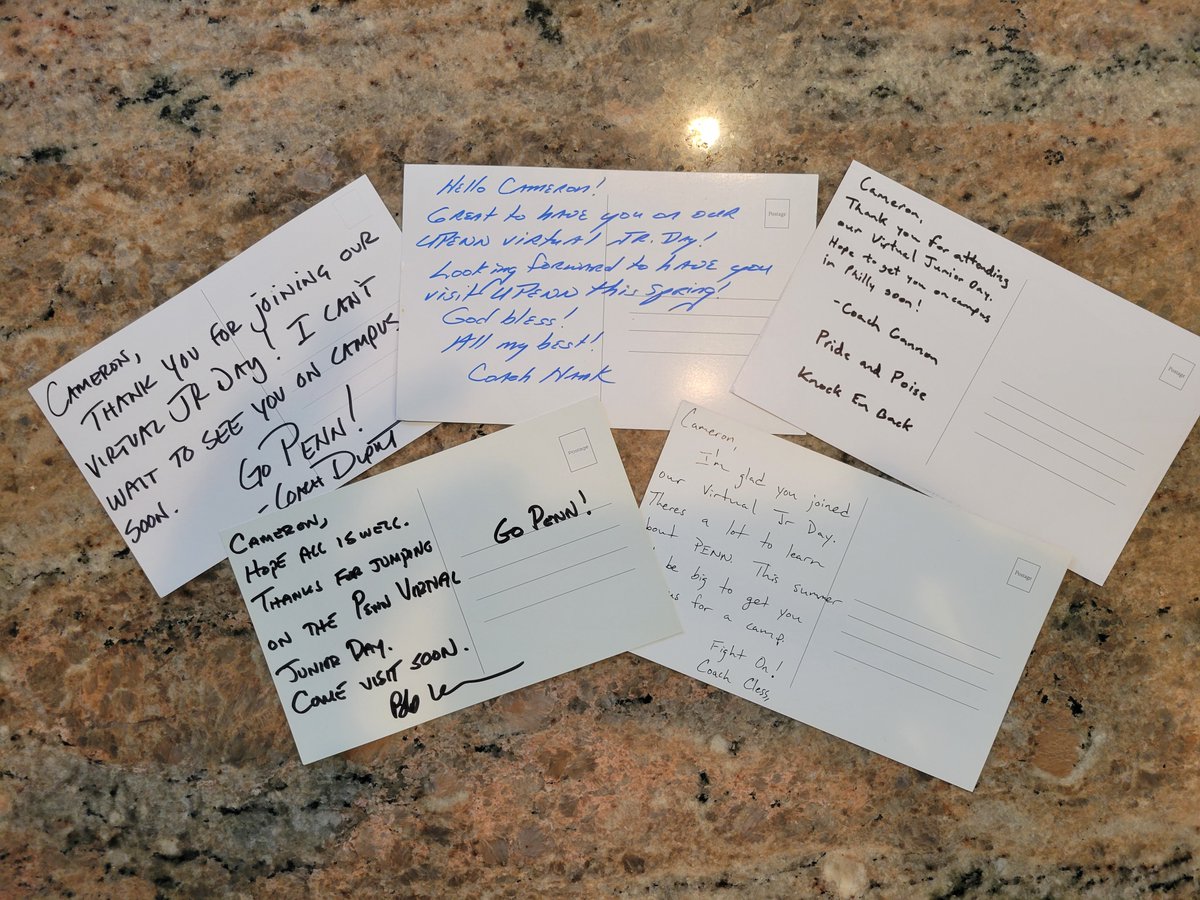 CAMERON,
THANK YOU FOR JOINING OUR
VIRTUAL JR DAY. I CAN'T
WAIT TO SEE YOU ON CAMPUS
SOON.
GO PENN!
- COACH
Hello CAMERON!
GREAT to HAVE you on our
UPENN VIRTUAL JR. DAY!
Looking forward to HAVE you
visit UPENN this Spring!
God bless!
All my best!
Coach
Postage
Cameron,
Thank you for attending
our Virtual Junior Day.
Hope to see you on campus
in Philly soon!
-Coach Gannon
Pride and Poise
Knock Em Back
Postage
CAMERON,
HOPE ALL IS WELL.
THANKS FOR JUMPING
ON THE PENN VIRTUAL
JUNIOR DAY.
COME VISIT SOON.
Postage
GO PENN!
Cameron,
I'm glad you joined
our Virtual Jr Day.
Theres a lot to learn
PENN. This summer
be big to get you
for a camp.
Fight On!
Coach Cless,
Postage